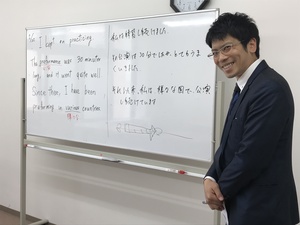 I kept on practicing.
The performance was 30 minutes
long, and it went quite well.
Since then, I have been
performing in various countries
私は練習し続けました。
公演は30分で
くいきました。
それ以来、私は様々な国で、公演
し続けています